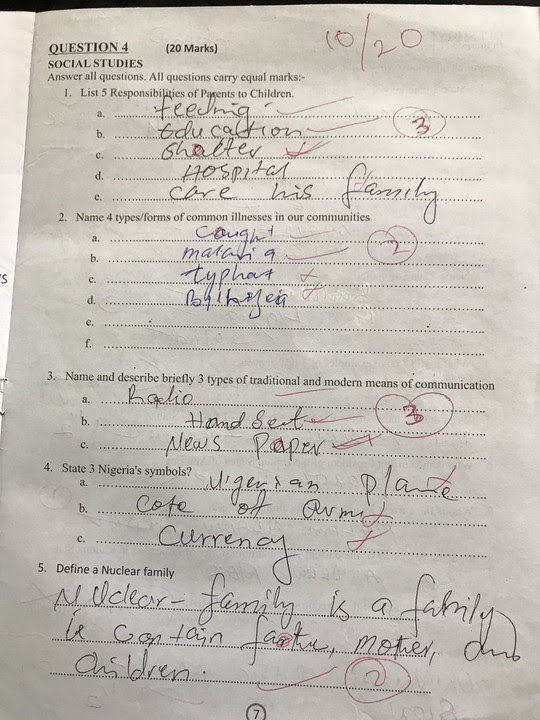 10/20
QUESTION 4 (20 Marks)
SOCIAL STUDIES
Answer all questions. All questions carry equal marks:-
1. List 5 Responsibilities of Parents to Children.
a. feeding
b. Educaltion
c. Shelter
d. HOSPITAL
e. care his family
3
2. Name 4 types/forms of common illnesses in our communities
a. Cought
b. malaria
c. typhat
d.
e.
f.
2
3. Name and describe briefly 3 types of traditional and modern means of communication
a. Radio
b. Hand Set
c. News Paper
3
4. State 3 Nigeria's symbols?
a. Nigerian
b. Cote of Arms
c. Currency
5. Define a Nuclear family
Nuclear - family is a family
is contain father, mother, and
children.
2
7